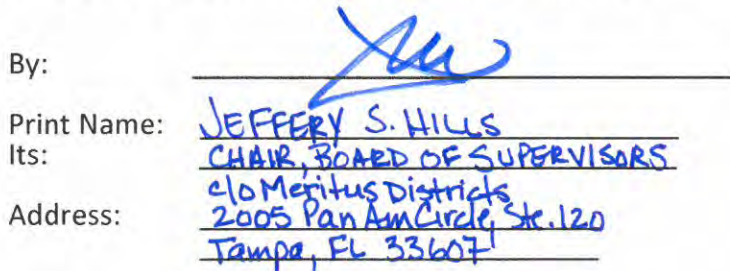 By:
Print Name: JEFFERY S. HILLS
Its: CHAIR, BOARD OF SUPERVISORS
c/o Meritus Districts
Address: 2005 Pan Am Circle, Ste. 120
Tampa, FL 33607